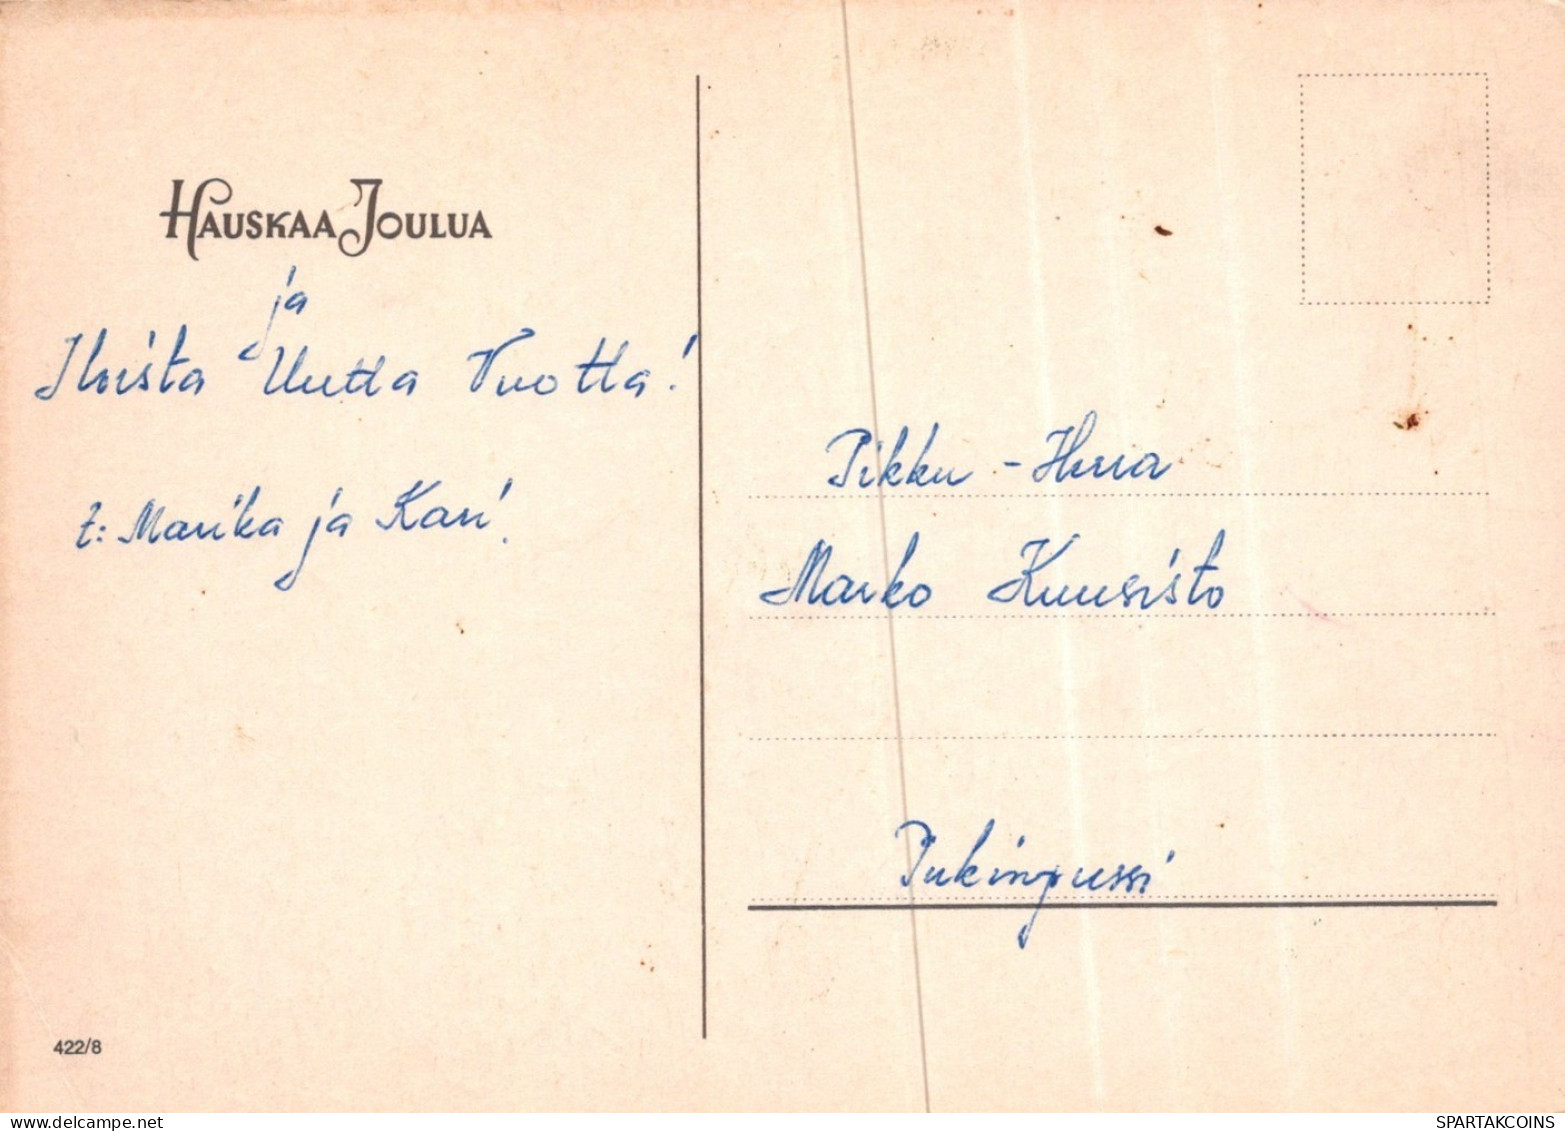 HAUSKAA JOULUA
ja
Iloista Uutta Vuotta!
t: Marika ja Kari.
Pikku-Herra
Marko Kuusisto
Pukinpussi
422/8
https://www.delcampe.net
SPARTAKCOINS